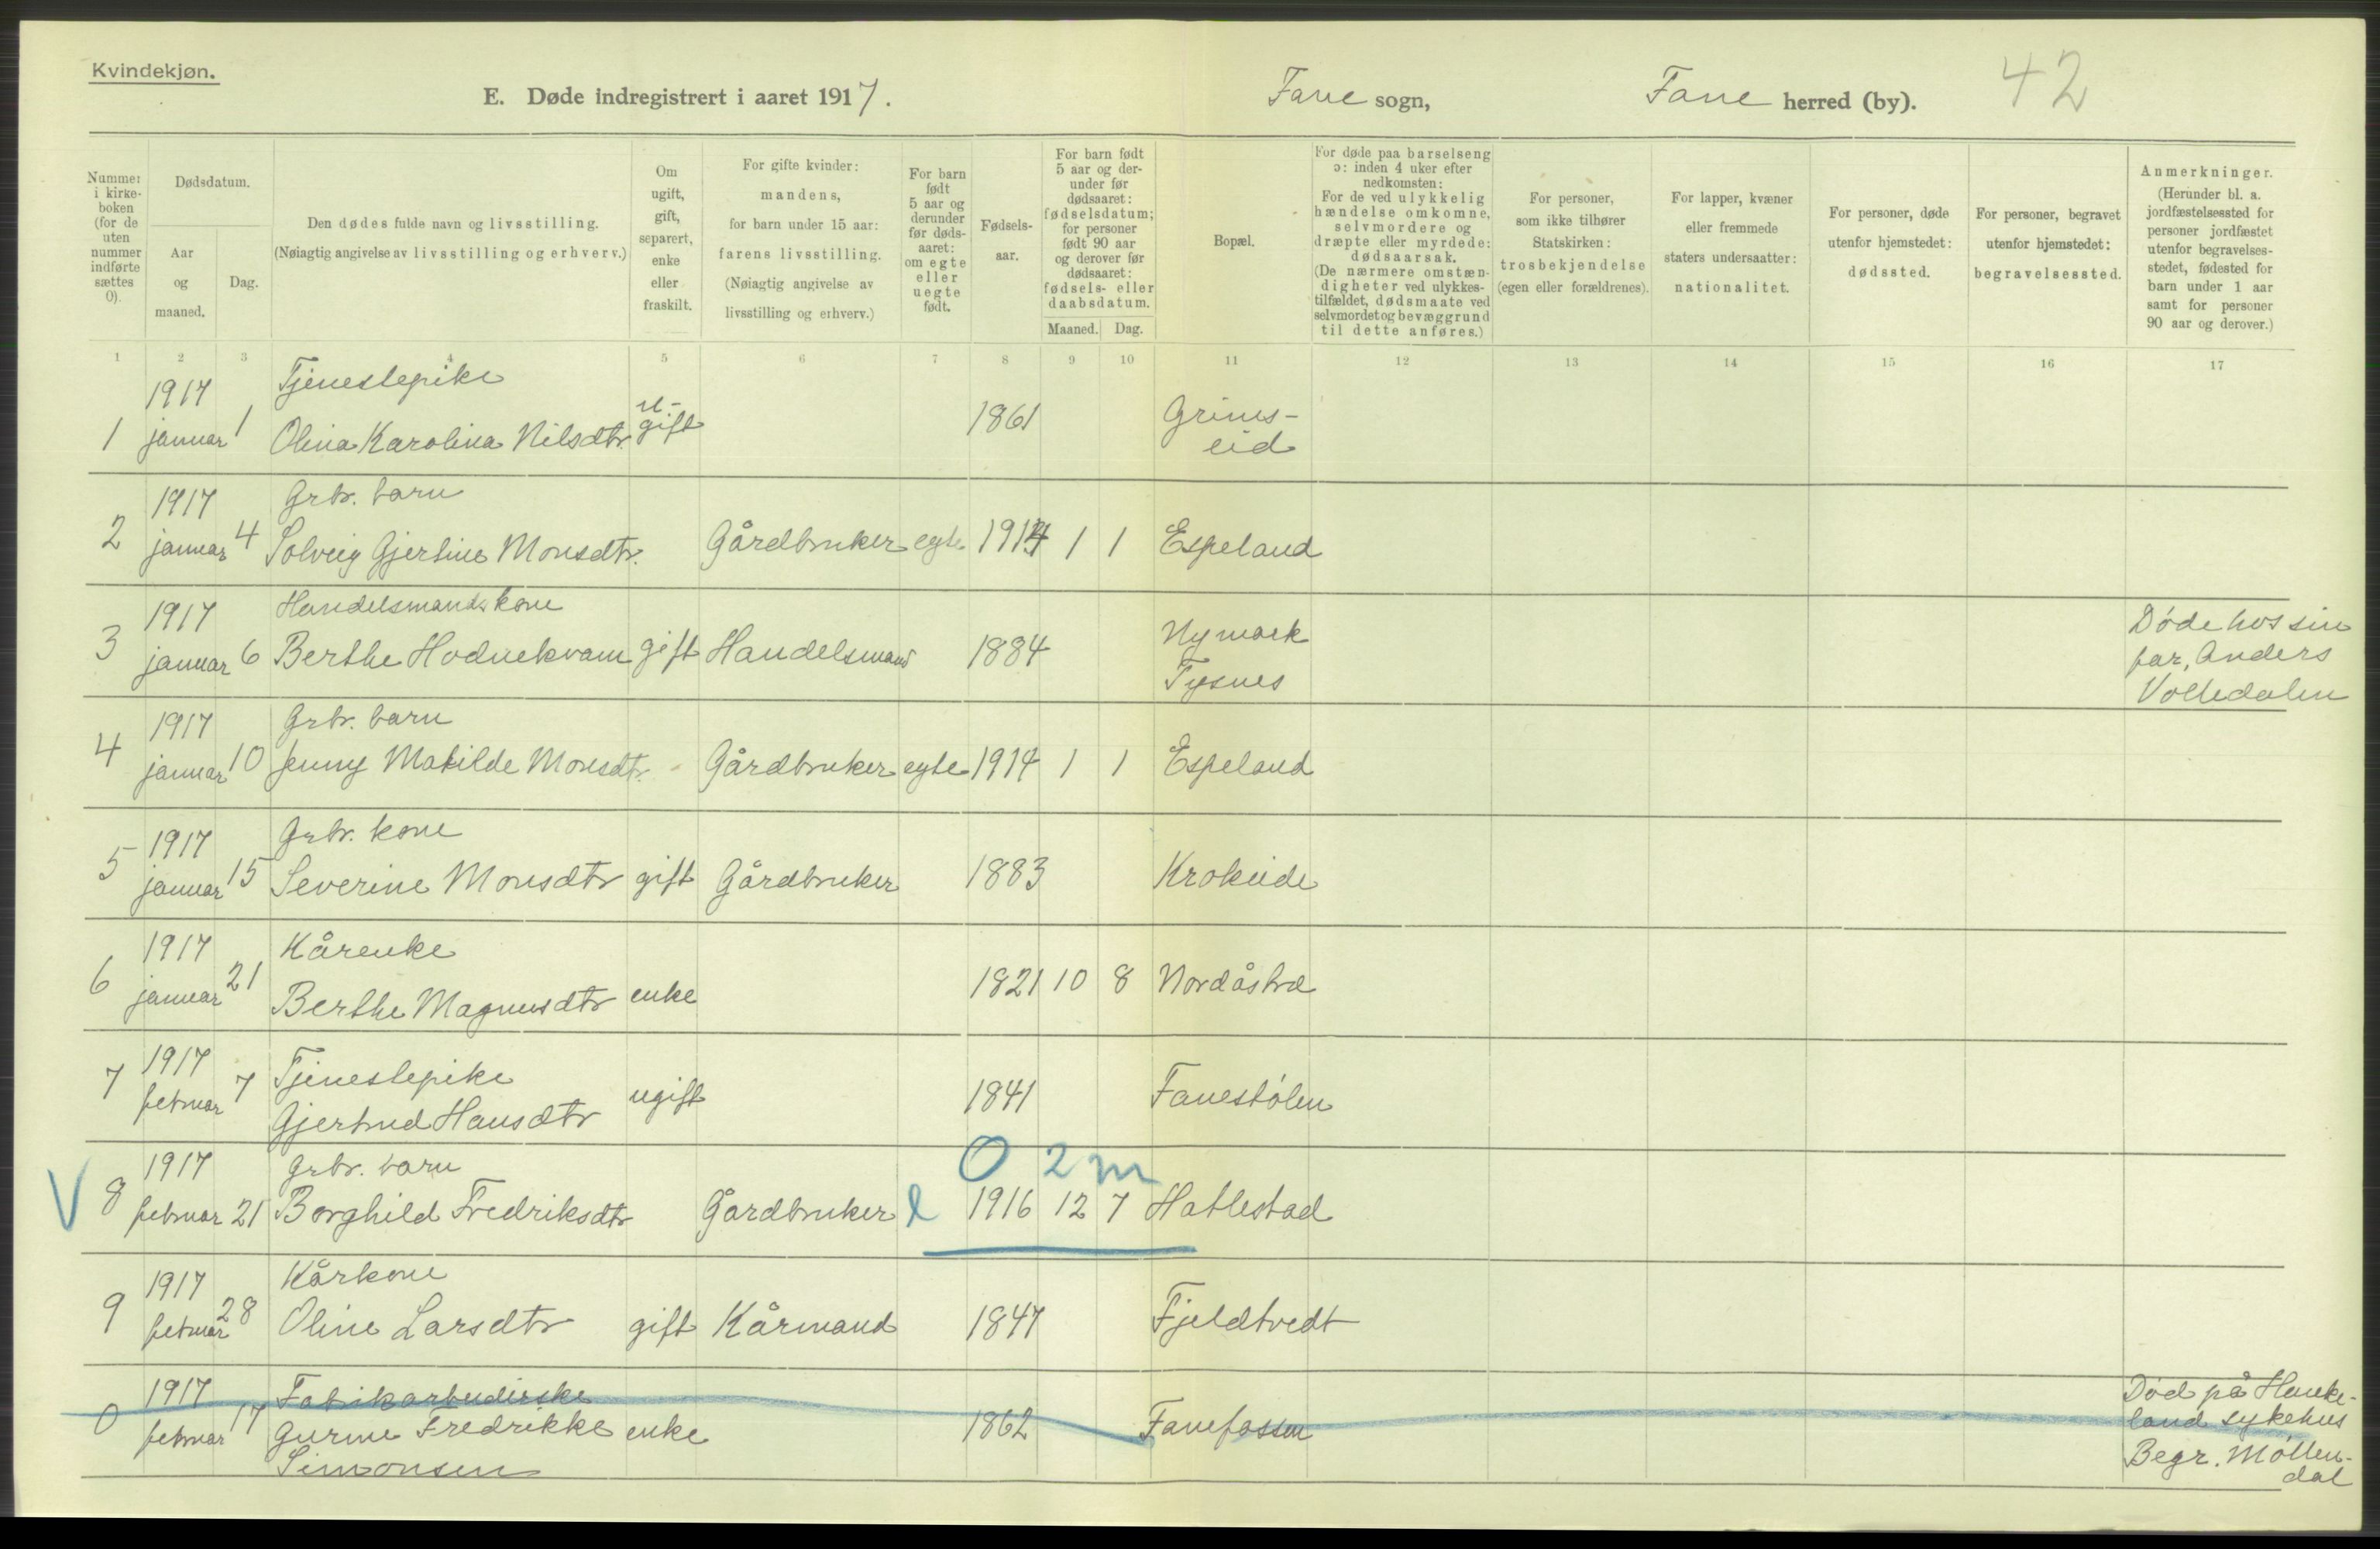 Kvindekjøn.
E. Døde indregistrert i aaret 1917.
Fane sogn,
Fane herred (by).
42
Nummer i kirkeboken (for de uten nummer indførte sættes 0).
Dødsdatum.
Aar og maaned.
Dag.
Den dødes fulde navn og livsstilling.
(Nøiagtig angivelse av livsstilling og erhverv.)
Om ugift, gift, separert, enke eller fraskilt.
For gifte kvinder: mandens, for barn under 15 aar: farens livsstilling. (Nøiagtig angivelse av livsstilling og erhverv.)
For barn født 5 aar og derunder før dødsaaret: om egte eller uegte født.
Fødselsaar.
For barn født 5 aar og derunder før dødsaaret: fødselsdatum; for personer født 90 aar og derover før dødsaaret: fødsels- eller daabsdatum.
Maaned. Dag.
Bopæl.
For døde paa barselseng ɔ: inden 4 uker efter nedkomsten: For de ved ulykkelig hændelse omkomne, selvmordere og dræpte eller myrdede: dødsaarsak. (De nærmere omstændigheter ved ulykkestilfældet, dødsmaate ved selvmordet og bevæggrund til dette anføres.)
For personer, som ikke tilhører Statskirken: trosbekjendelse (egen eller forældrenes).
For lapper, kvæner eller fremmede staters undersaatter: nationalitet.
For personer, døde utenfor hjemstedet: dødssted.
For personer, begravet utenfor hjemstedet: begravelsessted.
Anmerkninger. (Herunder bl. a. jordfæstelsessted for personer jordfæstet utenfor begravelsesstedet, fødested for barn under 1 aar samt for personer 90 aar og derover.)
1 2 3 4 5 6 7 8 9 10 11 12 13 14 15 16 17
1917 Tjenestepike
1 januar 1 Olina Karolina Nilsdtr. u-gift 1861 Grimseid
1917 Grbr. barn
2 januar 4 Solveig Gjertine Monsdtr. Gårdbruker egte 1914 1 1 Espeland
1917 Handelsmands kone
3 januar 6 Berthe Hodnekvam gift Handelsmand 1884 Nymark Tysnes
Døde hos sin
far, Anders
Volledalen
1917 Grbr. barn
4 januar 10 Jenny Matilde Monsdtr. Gårdbruker egte 1914 1 1 Espeland
1917 Grbr. kone
5 januar 15 Severine Monsdtr gift Gårdbruker 1883 Krokeide
1917 Kårenke
6 januar 21 Berthe Magnusdtr enke 1821 10 8 Nordåstræ
1917 Tjenestepike
7 februar 7 Gjertrud Hansdtr ugift 1841 Fanestølen
0 2 m
1917 Grbr. barn
V 8 februar 21 Borghild Fredriksdtr Gårdbruker l 1916 12 7 Hatlestad
1917 Kårkone
9 februar 28 Oline Larsdtr gift Kårmand 1847 Fjeldtvedt
1917 Fabrikarbeiderske
0 februar 17 Gurine Fredrikke enke 1862 Fanefossen
Simonsen
Død på Haukeland sykehus
Begr. Møllendal